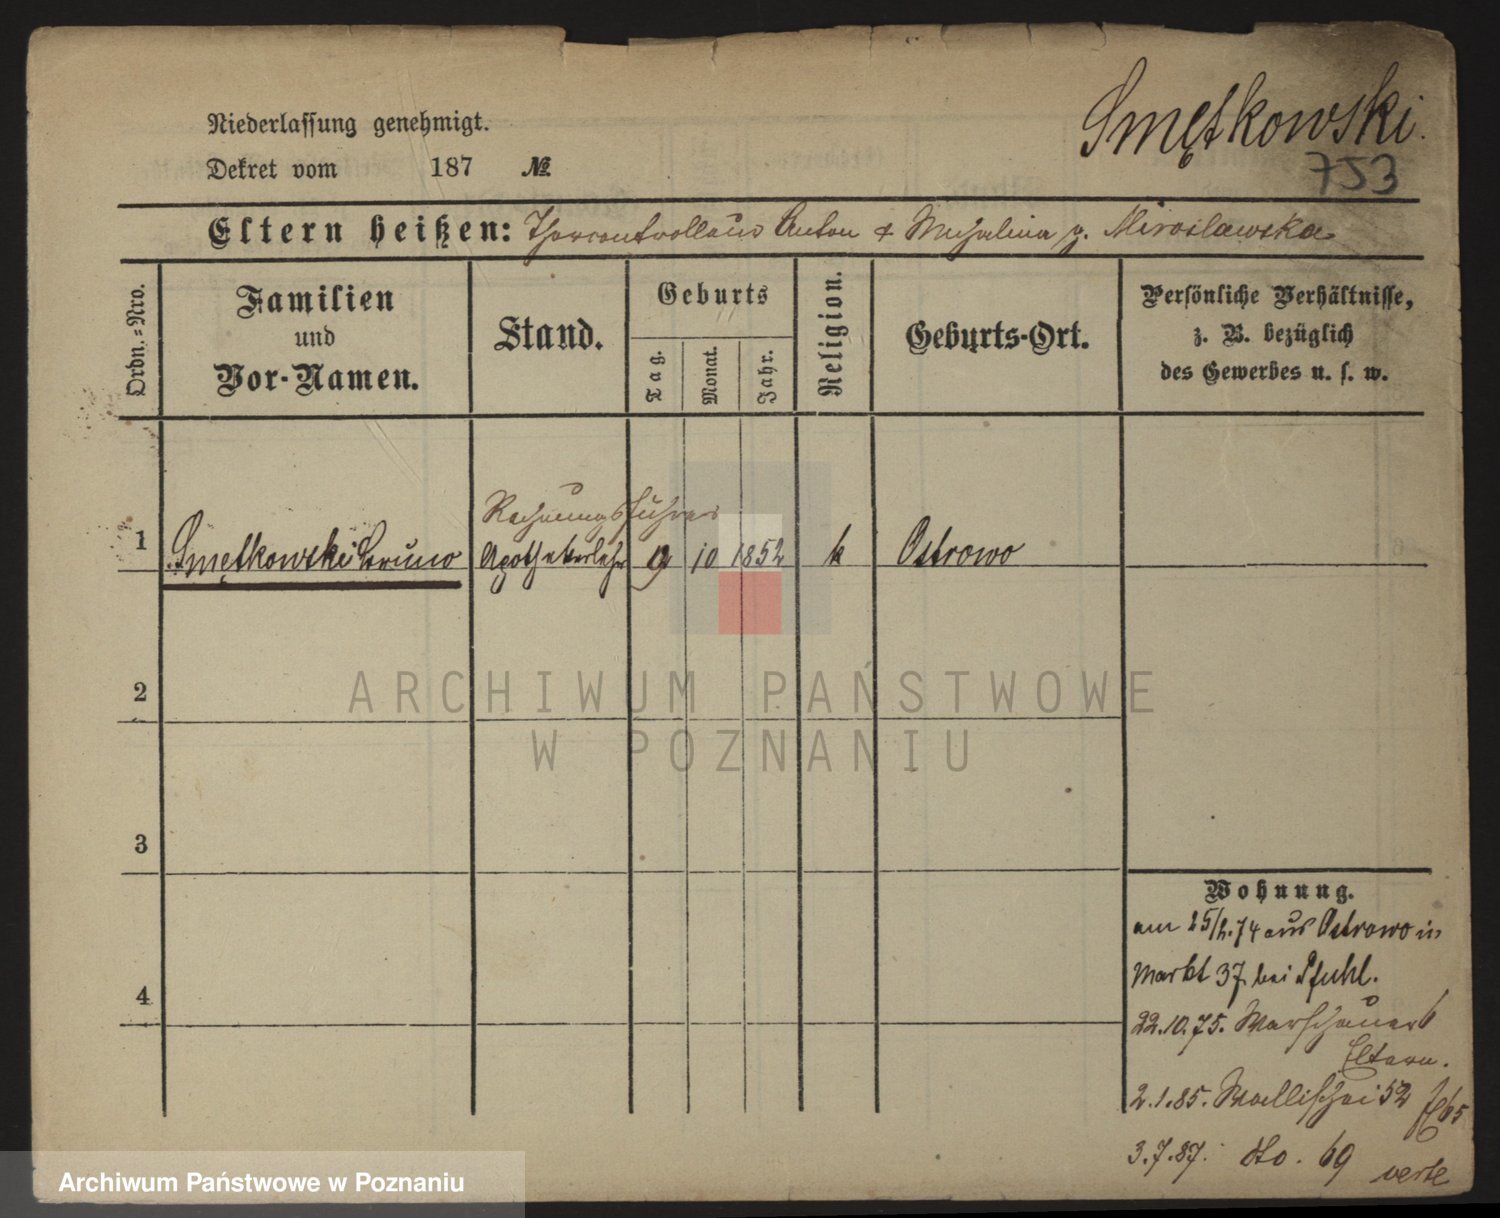 Niederlassung genehmigt.
Smętkowski.
Dekret vom 187 №
753
Eltern heißen: Thorcontrolleur Anton & Michalina g. Miroslawska
Ordn.-Nro.
Familien
und
Vor-Namen.
Stand.
Geburts
Tag.
Monat.
Jahr.
Religion.
Geburts-Ort.
Persönliche Verhältnisse,
z. B. bezüglich
des Gewerbes u. s. w.
Rechnungsführer
1 Smętkowski Bruno Apothekerlehr 9 10 1852 k Ostrowo
2
ARCHIWUM PAŃSTWOWE
W POZNANIU
3
Wohnung.
am 25/2.74 aus Ostrowo in
Markt 37 bei Pfuhl.
4
22.10.75. Warschauer 6
Eltern.
2.1.85. Wallischei 52
3.7.87. dto. 69 verte
Archiwum Państwowe w Poznaniu